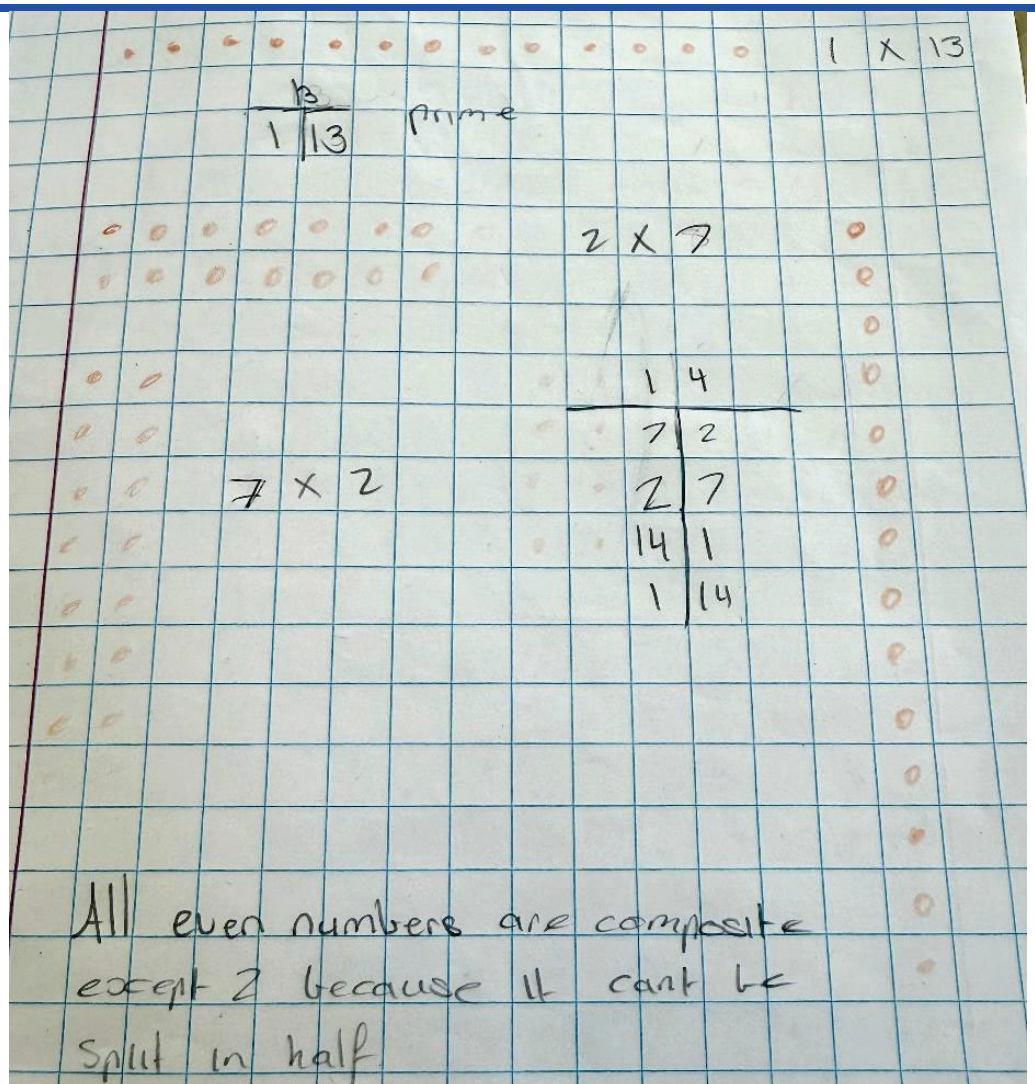 1 x 13
13
1 13 prime
2 x 7
1 4
7 2
7 x 2
2 7
14 1
1 14
All even numbers are composite
except 2 because it cant be
split in half.